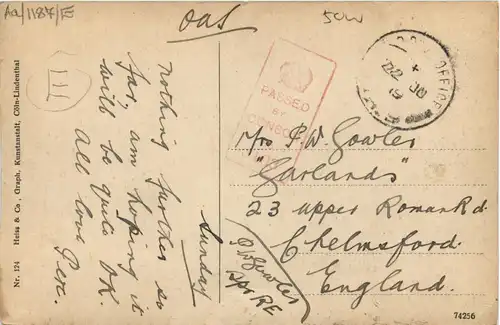 Aa/1187/E
OAS
50w
III
Nothing further so
far, am hoping it
will be quite OK.
All love
Perc.
Sunday
PASSED
BY
CENSOR
OFFICE
30
19
P.W. Gowler
"Garlands"
23 Upper Roman Rd
Chelmsford.
England.
P.W. Gowler
Spr RE
Heiss & Co., Graph. Kunstanstalt, Cöln-Lindenthal
Nr. 124
74256